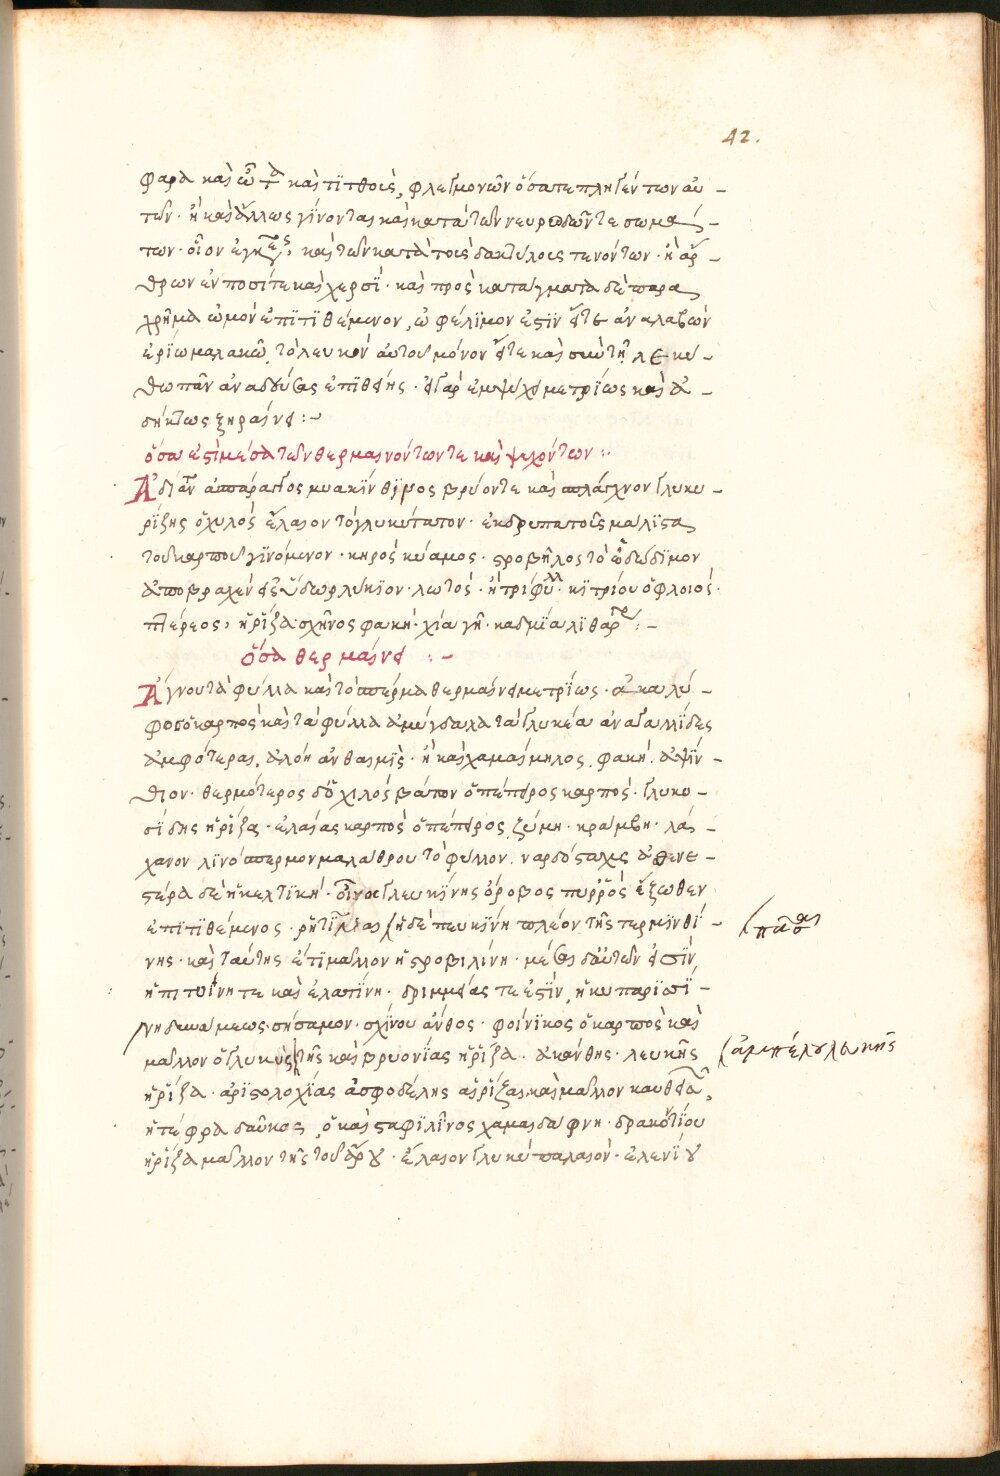 42.
φαρα καὶ ὦτα καὶ τιτθοὺς, φλεγμονῶν ὅσαπε πληγέντων αὐ -
τῶν · ἢ καὶ ἄλλως γίνονται καὶ κατὰ τῶν νευρωδῶν τε σωμά -
των · οἷον καὶ τῶν κατὰ τοὺς δακτύλους τενόντων · ἢ ἄρ -
θρων ἐν ποσί τε καὶ χερσῒ · καὶ πρὸς κατάγματα δὲ παρα
χρῆμα ὠμὸν ἐπιτιθέμενον, ὠφέλιμον ἐστὶν εἴτε ἀναλαβὼν
ἐρίω μαλακῶ, τὸ λευκὸν αὐτοῦ μόνον εἴτε καὶ σὺν τῆ λεκύ -
θω πᾶν ἀναδεύσας ἐπιθείης · ἐμψύχει μετρίως καὶ ἀ -
δήκτως ξηραίνει :~
ὅσα ἐστὶ μέσα τῶν θερμαινόντων τε καὶ ψυχόντων :·
Ἀδίαντον ἀσπάραγος μυακάνθινος βρύον τε καὶ σπλάγχνον γλυκυ -
ρίζης ὁ χυλὸς ἔλαιον τὸ γλυκύτατον · ἐκ δρυπατοῦς μάλιστα
τοῦ καρποῦ γινόμενον · κηρὸς κύαμος · στροβῆλος τὸ ἐδώδιμον
ἀποβραχὲν εἰς ὕδωρ γλύκιον · λωτὸς · ἡ τρίφυλλ · κιτρίου ὁ φλοιός ·
πτέρεος, ἡ ῥίζα σχῆνος φακῆ · χία γῆ · καδμία λιθάργυρος :~
ὅσα θερμαίνει :~
Ἄγνου τὰ φύλλα καὶ τὸ σπέρμα θερμαίνει μετρίως · ἀκαλύ -
φοσ ὁ καρπὸς καὶ τὰ φύλλα ἀμύγδαλα τὰ γλυκέα ἀναγαλλίδες
ἀμφότεραι, ἀλόη ἀνθεμὶς · ἢ καὶ χαμαίμηλος, φακῆ, ἀψίν -
θιον · θερμότερος δ' ὁ χυλὸς βάτον ὁ πέπειρος καρπός · γλυκυ -
σίδης ἡ ῥίζα · ἐλαίας καρπὸς ὁ πέπειρος, ζύμη · κράμβη · λά -
χανον λινόσπερμον μαλαθρου τὸ φύλλον, νάρδος στάχυς ἀσθενε -
στέρα δὲ ἡ κελτικὴ · οἶνος γλευκίνης ὄροβος πυῤῥὸς ἔξωθεν
ἐπιτιθέμενος · ῥητίναι ( ἡ δὲ πευκίνη πλέον τῆς τερμινθί -
νης · καὶ ταύτης ἔτι μᾶλλον ἡ στροβιλίνη · μέσαι δ' αὐτῶν εἰσὶν
ἡ πιτυΐνη τε καὶ ἐλατίνη · δριμεῖαι τε ἐστὶν, ἡ κυπαρισσί -
νη δυνάμεως · σήσαμον · σχίνου ἄνθος · φοίνικος ὁ καρπὸς καὶ
μᾶλλον ὁ γλυκὺς ( τῆς καὶ βρυονίας ἡ ῥίζα · ἀκάνθης · λευκῆς
ἡ ῥίζα · ἀριστολοχίας ἀσφοδέλης αἱ ῥίζαι, καὶ μᾶλλον καυθεῖσα,
ἡ τέφρα δαῦκος, ὁ καὶ σταφιλῖνος χαμαιδάφνη · δρακοντίου
ἡ ῥίζα μᾶλλον τῆς τοῦ ἄρου · ἔλαιον γλυκὺ παλαιὸν · ἑλενίου
( πᾶσαι
( ἀμπέλου λευκῆς